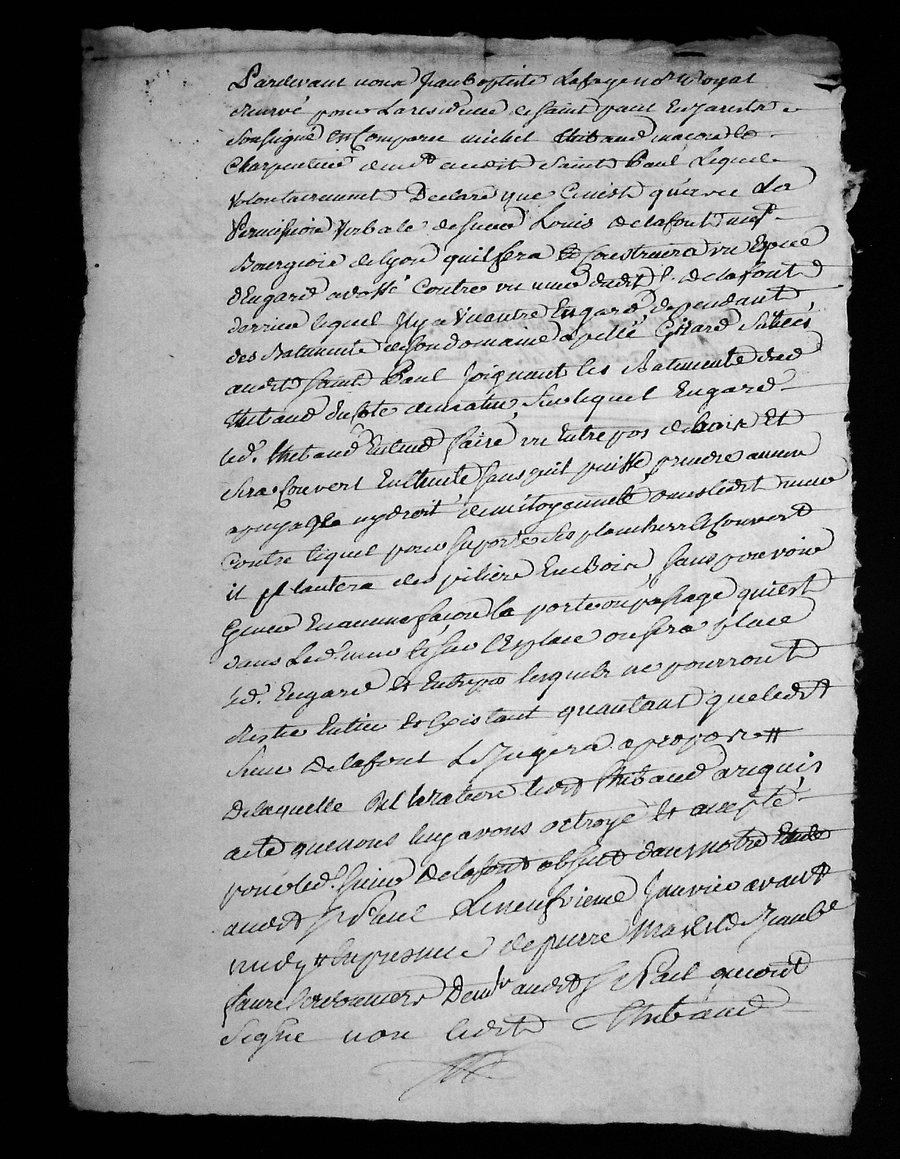 Pardevant nous Jean Baptiste Lafaye notre Royal
reservé pour la residence de Saint paul En Jarest
Soussigné est Comparu michel thibaud macon &
Charpentier dem.t audit Saint Paul Lequel
volontairement Declare que C'est qu'avec La
Permission verbale de sieur Louis delafont
Bourgeois de lyon quil fera & Construira un Espece
d'Engard adossé Contre un mur dudit s.r delafont
derrier lequel Il y a un autre Engard dependant
des Batiments de son domaine apellé Situés
audit Saint Paul Joignant les Batiments dud
thibaud du coté de matin, Sur lequel Engard
led. thibaud Entend faire un Entrepos de bois Et
Sera Couvert En tente sans quil puisse prendre aucun
apuyage ny droit de mitoyenneté dans ledit mur
Contre lequel pour suporter les planchers & Couvert
il plantera des piliers En Bois sans pouvoir
Gener En aucune façon la porte ou passage qui est
dans Led. mur Sur l'Esplace ou sera placé
led. Engard & Entrepos lesquels ne pourront
Restre Entier & Existant qu'autant que ledit
Sieur Delafont Le Jugera a propos #
De laquelle Declaration ledit thibaud a requis
acte que nous luy avons octroyé & accepté
pour led. sieur Delafont absent dans notre Etude
audit S.t Paul Le neufvieme Janvier avant
midy # En presence de pierre & Jean B.te
faure Cordonniers Dem.ts audit S.t Paul qui ont
Signé non ledit thibaud